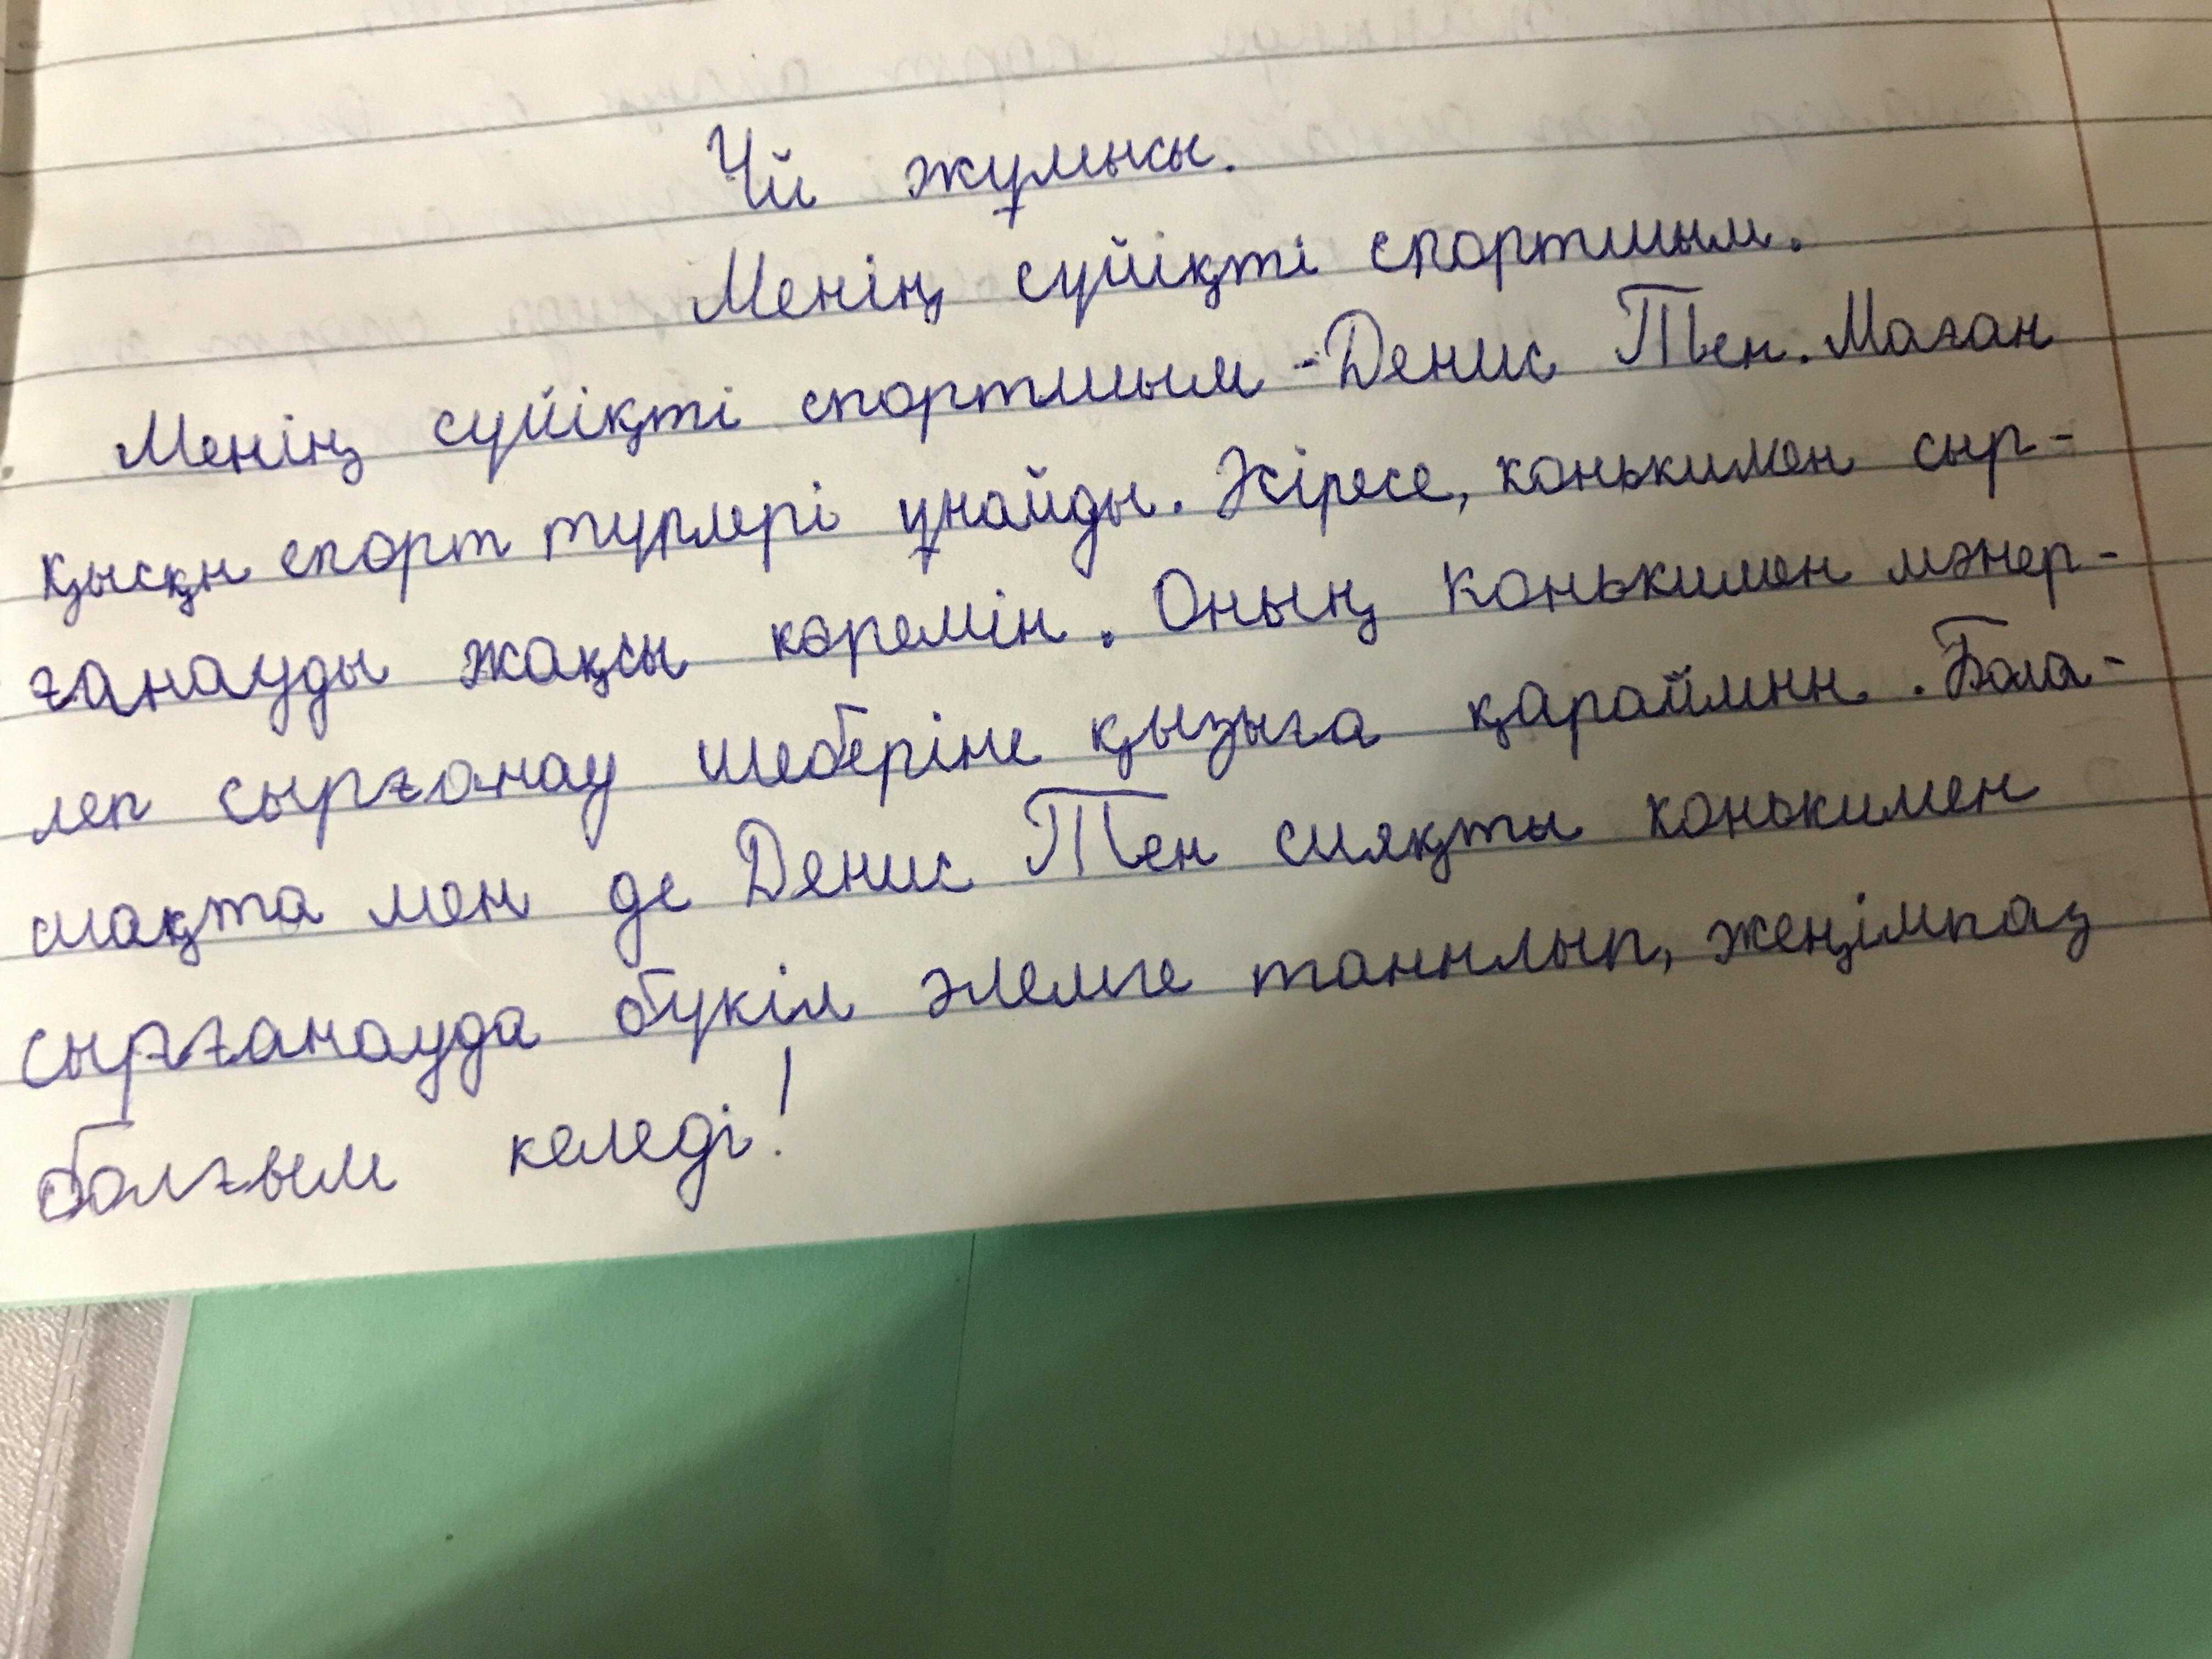 Үй жұмысы.
Менің сүйіқті спортшым.
Менің сүйіқті спортшым - Денис Тен. Маған
қысқы спорт түрлері ұнайды. Әсіресе, конькимен сыр-
ғанауды жақсы көремін. Оның конькимен мәнер-
леп сырғанау шеберіне қызыға қараймын. Бола-
шақта мен де Денис Тен сияқты конькимен
сырғанауда бүкіл әлемге танылып, жеңімпаз
болғым келеді!